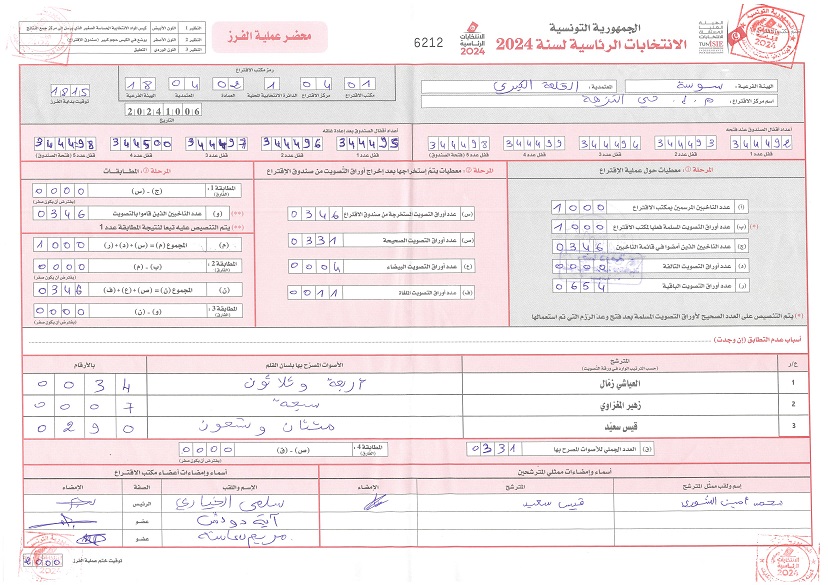 الجمهورية التونسية
الانتخابات الرئاسية لسنة 2024
الانتخابات الرئاسية 2024
6212
محضر عملية الفرز
النظير 1 اللون الأبيض
النظير 2 اللون الأصفر
النظير 3 اللون الوردي التعليق
الهيئة الفرعية: سوسة المعتمدية: القلعة الكبرى
اسم مركز الاقتراع: م. إ. حي النزهة
رمز مكتب الاقتراع
01 04 1 02 04 18
مكتب الاقتراع مركز الاقتراع الدائرة الانتخابية المحلية العمادة المعتمدية الهيئة الفرعية
20241006
التاريخ
1815
توقيت بداية الفرز
أعداد أقفال الصندوق عند فتحه
344492 344493 344494 344499 344498
قفل عدد 1 قفل عدد 2 قفل عدد 3 قفل عدد 4 قفل عدد 5 (فتحة الصندوق)
أعداد أقفال الصندوق بعد إعادة غلقه
344495 344496 344497 344500 344498
قفل عدد 1 قفل عدد 2 قفل عدد 3 قفل عدد 4 قفل عدد 5 (فتحة الصندوق)
المرحلة ①: معطيات حول عملية الاقتراع
(أ) عدد الناخبين المرسمين بمكتب الاقتراع 1000
(*) (ب) عدد أوراق التصويت المسلمة فعليا لمكتب الاقتراع 1000
(ج) عدد الناخبين الذين أمضوا في قائمة الناخبين 0346
(د) عدد أوراق التصويت التالفة 0000
(ر) عدد أوراق التصويت الباقية 0654
(*) يتم التنصيص على العدد الصحيح لأوراق التصويت المسلمة بعد فتح وعد الرزم التي تم استعمالها
المرحلة ②: معطيات يتم إستخراجها بعد إخراج أوراق التصويت من صندوق الاقتراع
(س) عدد أوراق التصويت المستخرجة من صندوق الاقتراع 0346
(ص) عدد أوراق التصويت الصحيحة 0331
(ع) عدد أوراق التصويت البيضاء 0004
(ف) عدد أوراق التصويت الملغاة 0011
المرحلة ③: المطابقات
المطابقة 1: (الفارق) (ج) - (س) 0000
(يفترض أن يكون صفر)
(**) (و) عدد الناخبين الذين قاموا بالتصويت 0346
(**) يتم التنصيص عليه تبعا لنتيجة المطابقة عدد 1
(م) المجموع (م) = (س)+(د)+(ر) 1000
المطابقة 2: (الفارق) (ب) - (م) 0000
(يفترض أن يكون صفر)
(ن) المجموع (ن) = (ص)+(ع)+(ف) 0346
المطابقة 3: (الفارق) (و) - (ن) 0000
(يفترض أن يكون صفر)
أسباب عدم التطابق (إن وجدت)
ع/ر المترشح الأصوات المصرح بها بلسان القلم بالأرقام
(حسب الترتيب الوارد في ورقة التصويت)
1 العياشي زمّال أربعة وثلاثون 0034
2 زهير المغزاوي سبعة 0007
3 قيس سعيّد مئتان وتسعون 0290
(ق) العدد الجملي للأصوات المصرح بها 0331
المطابقة 4: (الفارق) (ص) - (ق) 0000
(يفترض أن يكون صفر)
أسماء وإمضاءات ممثلي المترشحين
إسم ولقب ممثل المترشح المترشح الإمضاء
قيس سعيد
أسماء وإمضاءات أعضاء مكتب الاقتراع
الاسم واللقب الصفة الإمضاء
الرئيس
عضو
عضو
توقيت ختم عملية الفرز
2000